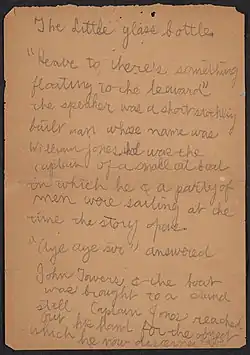 The Little glass bottle.
"Heave to, there's something
floating to the leeward"
the speaker was a short stockily
built man whose name was
William Jones. he was the
captain of a small cat boat
in which he & a party of
men were sailing at the
time the story opens.
"Aye aye sir" answered
John Towers & the boat
was brought to a stand
still Captain Jones reached
out his hand for the object
which he now discerned